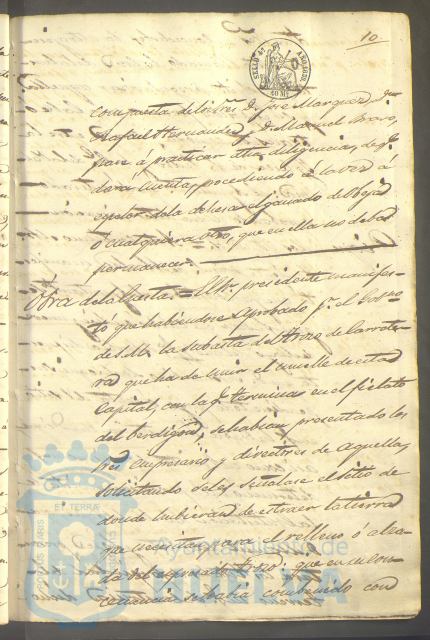 10.
SELLO 4º AÑO 1861.
40 Ms
compuesta de los Sres. D. José Marquez, Dn
Rafael Hernandez y D. Manuel Bravo,
pase á practicar dha diligencia, de q.
dará cuenta, procediendo á la vez á
espeler de la dehesa el ganado de Obejas
ó cualquiera otro, que en ella no deba
permanecer.
Obra de la Cuesta. = El Sr. presidente manifes-
tó que habiendose aprobado pr. el Gobno
de S.M. la subasta del trozo de Carrete-
ra que ha de unir el muelle de esta
Capital, con la q. termina en el fielato
del berdigon, se habian presentado los
Sres Empresario y directores de aquella,
solicitando se les señalase el sitio de
donde hubieran de estraer la tierra
que necesitan para el relleno ó alza-
da del espresado trozo; que en su con-
secuencia se habia combenido con
Ayuntamiento de
HUELVA